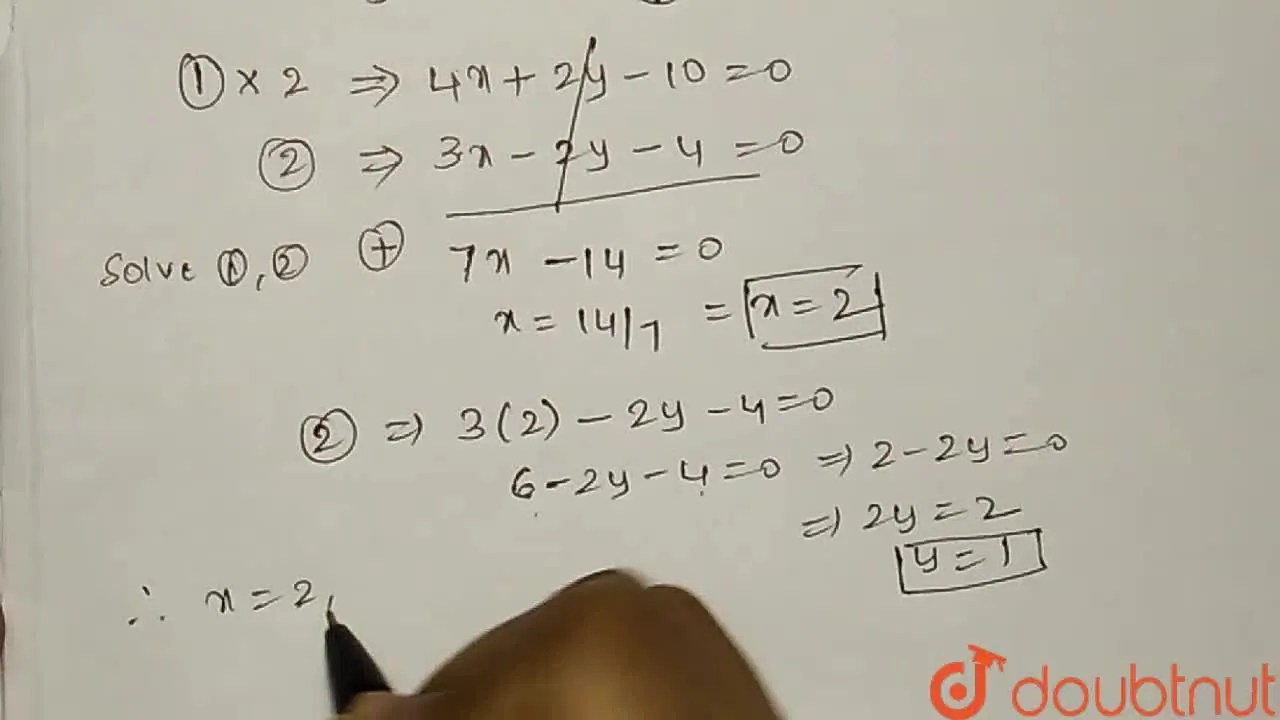 ① × 2 ⇒ 4x + 2y - 10 = 0
② ⇒ 3x - 2y - 4 = 0
Solve ①, ② ⊕ 7x - 14 = 0
x = 14/7 = x = 2
② ⇒ 3(2) - 2y - 4 = 0
6 - 2y - 4 = 0 ⇒ 2 - 2y = 0
⇒ 2y = 2
y = 1
∴ x = 2,
doubtnut